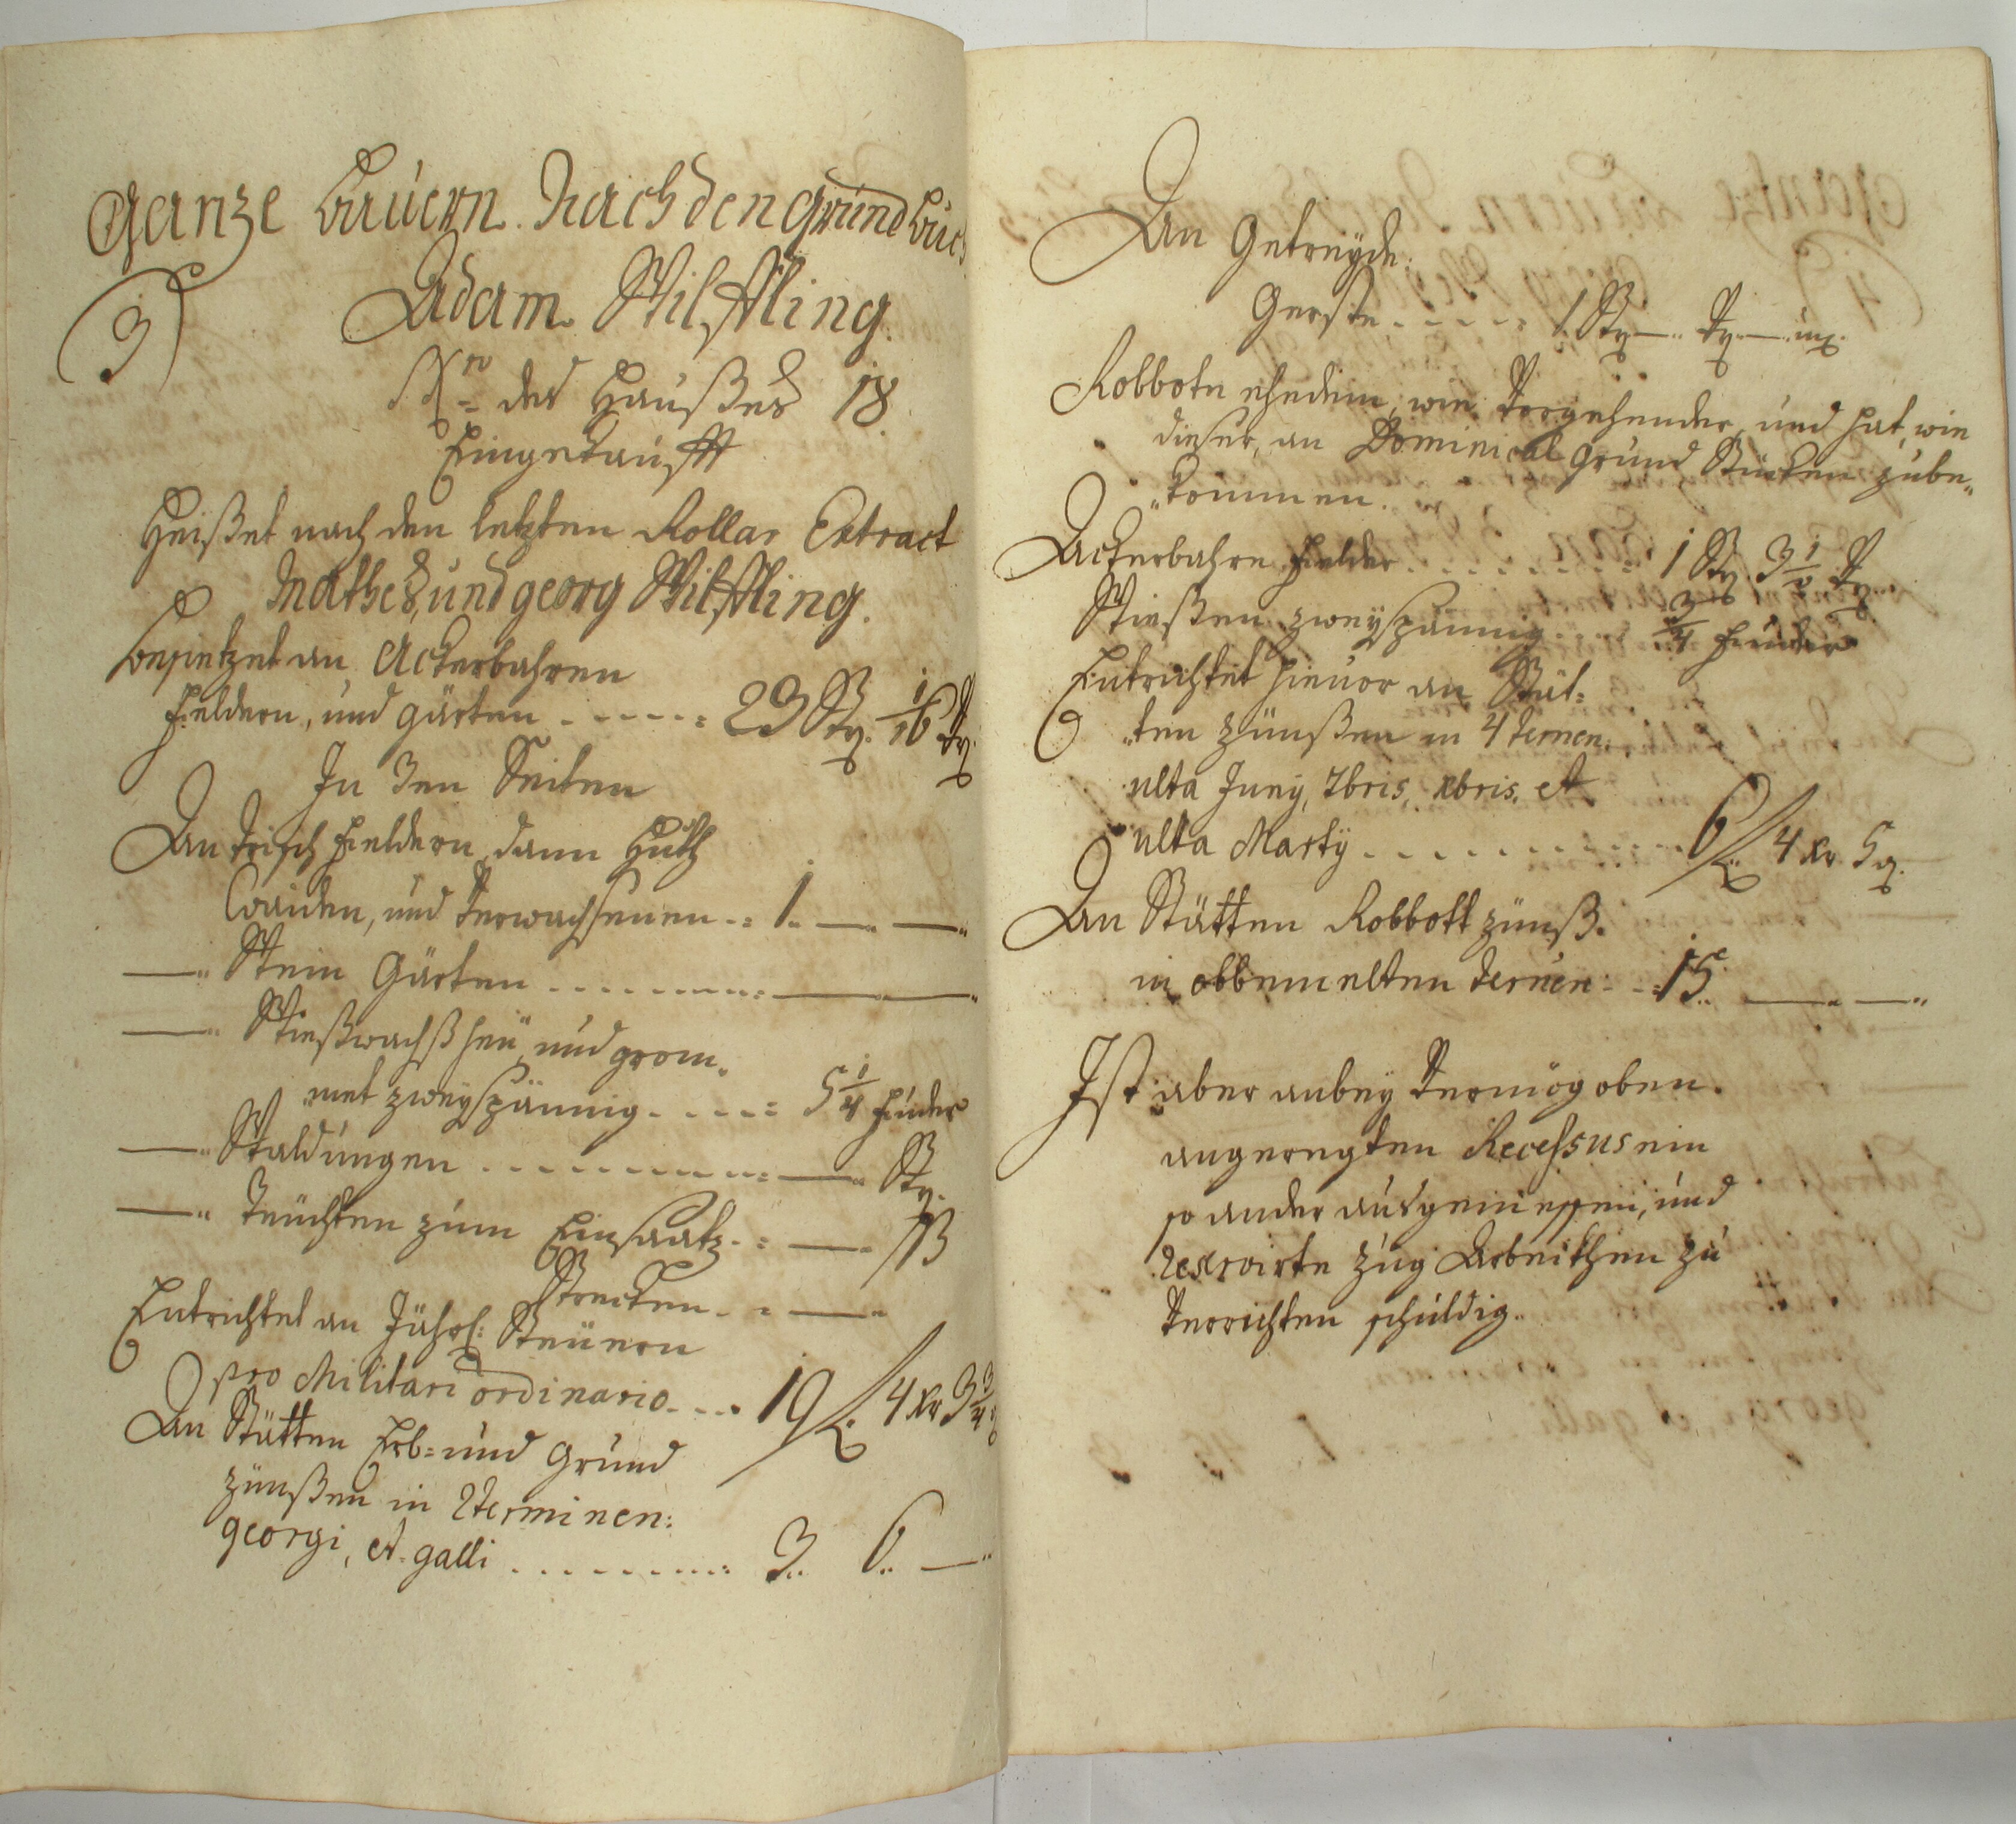 Ganze Bauern. Nach den Grund Buch
3
Adam Wilffling.
Nro des Haußes 18.
Eingekaufft
Heißet nach den letzten Rollar Extract
Mathes, und georg Wilffling.
besietzet an Ackerbahren
Feldern, und gärten . . . . . 23 Str. 1/16 Vrt.
In den Seiten
An Trisch Feldern, dann Huth
Waiden, und Verwachsenen . . 1. — —
— Wein Gärten . . . . . . . . — —
— Wießwachß heü, und grom„
„met zweyspännig . . . . 5 1/4 Fuder
— Waldungen . . . . . . . . . — Str.
— Teüchten zum Einsaatz . . — ßß
Strecken . . —
Entrichtet an Jährl: Steüern
pro Militari ordinario . . . 19 f. 4 xr 3 3/4
An Stätten Erb= und Grund
zünßen in 2 terminen:
georgi, et galli . . . . . . . . . 3.. 6.. —
An Getreyde:
Gerste . . . . . 1. Str — Vrt — mx.
Robbote ehedem, wie Vorgehender, und hat, wie
dieser, an Dominical Grund Stücken zube„
„kommen.
Ackerbahre Felder . . . . . . . . . 1 Str. 3 1/2 Vrt
Wießen zweyspännig . . . . 3/4 Fuder
Entrichtet hievor an Stät:
„ten zünßen in 4 ternen:
ulta Juny, 7bris, xbris, et
ulta Marty . . . . . . . . . . . 6 f. 4 xr 5 q.
An Stätten Robbott zünß.
in obbemelten ternen . . 15. — —
Ist aber anbey Vermög oben.
angeregten Recessus ein
so ander ausgemessene, und
reservirte Zug Arbeithen zu
Verrichten schuldig.